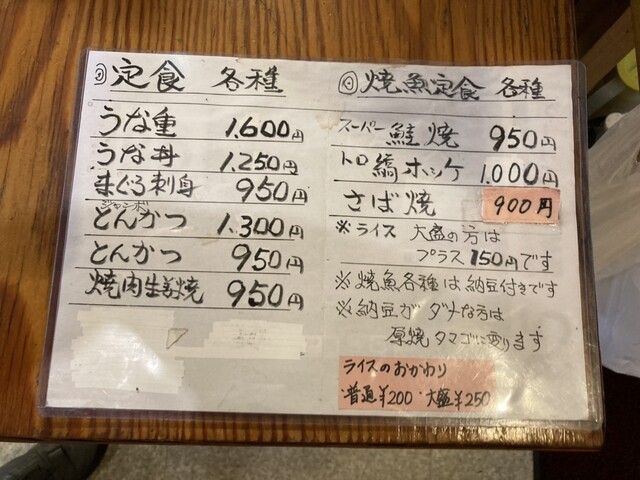 ◎定食 各種
うな重 1.600円
うな丼 1.250円
まぐろ刺身 950円
ジャンボ
とんかつ 1.300円
とんかつ 950円
焼肉生姜焼 950円
◎焼魚定食 各種
スーパー鮭焼 950円
トロ縞ホッケ 1.000円
さば焼 900円
※ライス 大盛の方は
プラス150円です
※焼魚各種は納豆付きです
※納豆がダメな方は
厚焼タマゴに変ります
ライスのおかわり
・普通¥200・大盛¥250